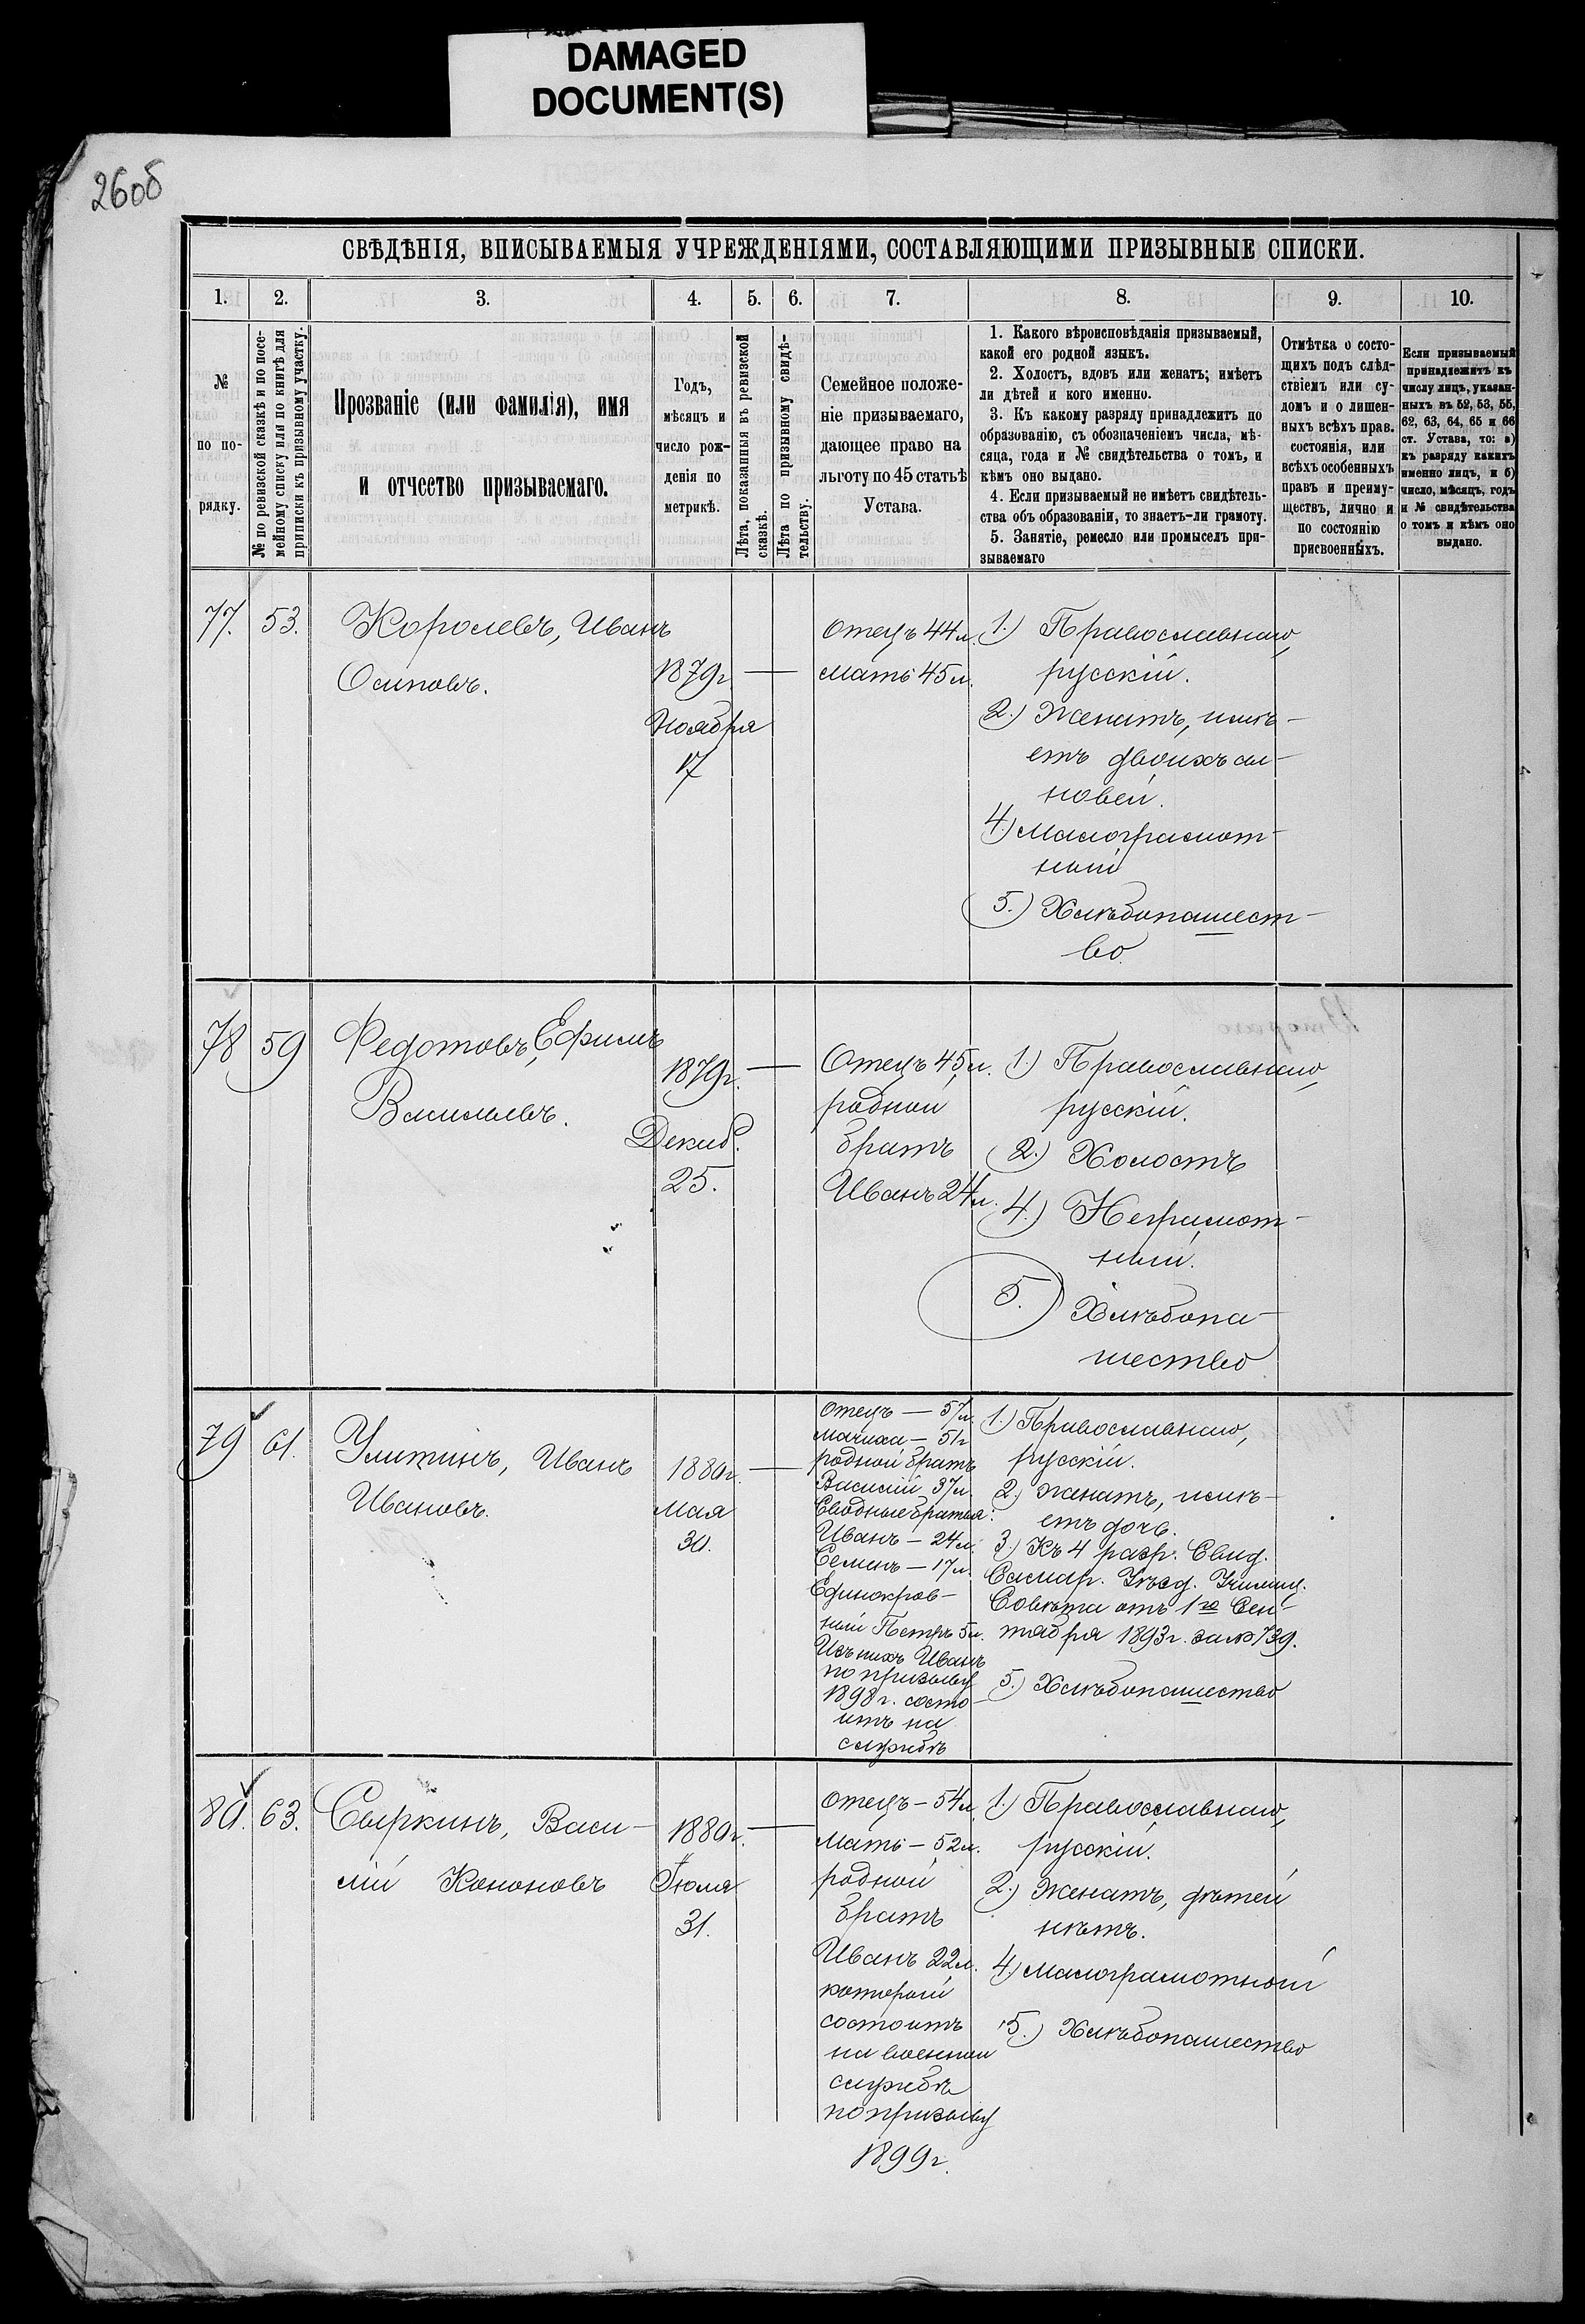 DAMAGED
DOCUMENT(S)
26об
СВѢДѢНІЯ, ВПИСЫВАЕМЫЯ УЧРЕЖДЕНІЯМИ, СОСТАВЛЯЮЩИМИ ПРИЗЫВНЫЕ СПИСКИ.
1. 2. 3. 4. 5. 6. 7. 8. 9. 10.
№
по по-
рядку.
№ по ревизской сказкѣ и по посе-
мейному списку или по книгѣ для
приписки къ призывному участку.
Прозваніе (или фамилія), имя
и отчество призываемаго.
Годъ,
мѣсяцъ и
число рож-
денія по
метрикѣ.
Лѣта, показанныя въ ревизской
сказкѣ.
Лѣта по призывному свидѣ-
тельству.
Семейное положе-
ніе призываемаго,
дающее право на
льготу по 45 статьѣ
Устава.
1. Какого вѣроисповѣданія призываемый,
какой его родной языкъ.
2. Холостъ, вдовъ или женатъ; имѣетъ
ли дѣтей и кого именно.
3. Къ какому разряду принадлежитъ по
образованію, съ обозначеніемъ числа, мѣ-
сяца, года и № свидѣтельства о томъ, и
кѣмъ оно выдано.
4. Если призываемый не имѣетъ свидѣтель-
ства объ образованіи, то знаетъ-ли грамоту.
5. Занятіе, ремесло или промыселъ при-
зываемаго
Отмѣтка о состо-
щихъ подъ слѣд-
ствіемъ или су-
домъ и о лишен-
ныхъ всѣхъ прав.
состоянія, или
всѣхъ особенныхъ
правъ и преиму-
ществъ, лично и
по состоянію
присвоенныхъ.
Если призываемый
принадлежитъ къ
числу лицъ, указан-
ныхъ въ 52, 53, 55,
62, 63, 64, 65 и 66
ст. Устава, то: а)
къ разряду какихъ
именно лицъ, и б)
число, мѣсяцъ, годъ
и № свидѣтельства
о томъ и кѣмъ оно
выдано.
77. 53.
Королевъ, Иванъ
Осиповъ.
1879г.
Ноября
17
отецъ 44л.
мать 45л.
1.) Православнаго,
русскій.
2.) Женатъ, имѣ-
етъ двоихъ сы-
новей.
4.) малограмот-
ный
5.) Хлѣбопашест-
во.
78 59
Федотовъ, Ефимъ
Васильевъ.
1879г.
Декаб.
25.
Отецъ 45л.
родной
братъ
Иванъ 24л.
1.) Православнаго,
русскій.
2.) Холостъ
4.) Неграмот-
ный.
5.) Хлѣбопа-
шество
79 61.
Улитинъ, Иванъ
Ивановъ.
1880г.
мая
30.
отецъ — 57л.
мачиха — 51г
родной братъ
Василій 37л.
Сводные братья:
Иванъ — 24л.
Семенъ — 17л.
Единокров-
ный Петръ 5л.
Изъ нихъ Иванъ
по призыву
1898г. состо-
итъ на
службѣ
1.) Православнаго,
русскій.
2.) женатъ, имѣ-
етъ дочь.
3.) Къ 4 разр. Свид.
Самар. Уѣзд. Училищ.
Совѣта отъ 1го Сен-
тября 1893г. за № 739.
5.) Хлѣбопашество
80. 63.
Сыркинъ, Васи-
лій Кононовъ
1880г.
Іюля
31.
отецъ — 54л.
мать — 52л.
родной
братъ
Иванъ 22л.
который
состоитъ
на военной
службѣ
по призыву
1899г.
1.) Православнаго,
русскій.
2.) Женатъ, дѣтей
нѣтъ.
4.) малограмотный
5.) Хлѣбопашество